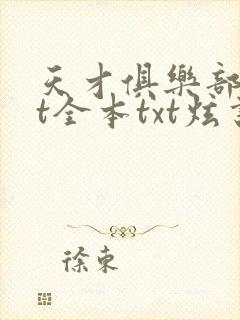 天才俱樂部
t全本txt炫
徐東